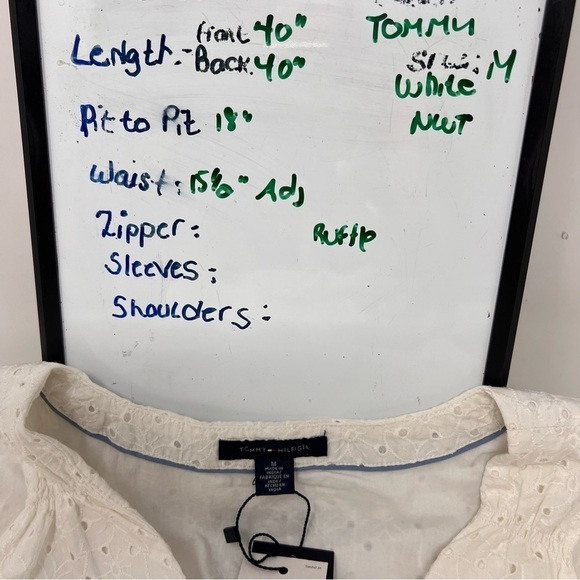 Front 40" TOMMY
Length- Back. 40" Size: M
White
Pit to Pit 18" NWT
Waist: 15½" Adj
Zipper: Ruffle
Sleeves:
Shoulders:
TOMMY HILFIGER
M
MADE IN
INDIA
FABRIQUE EN
INDE